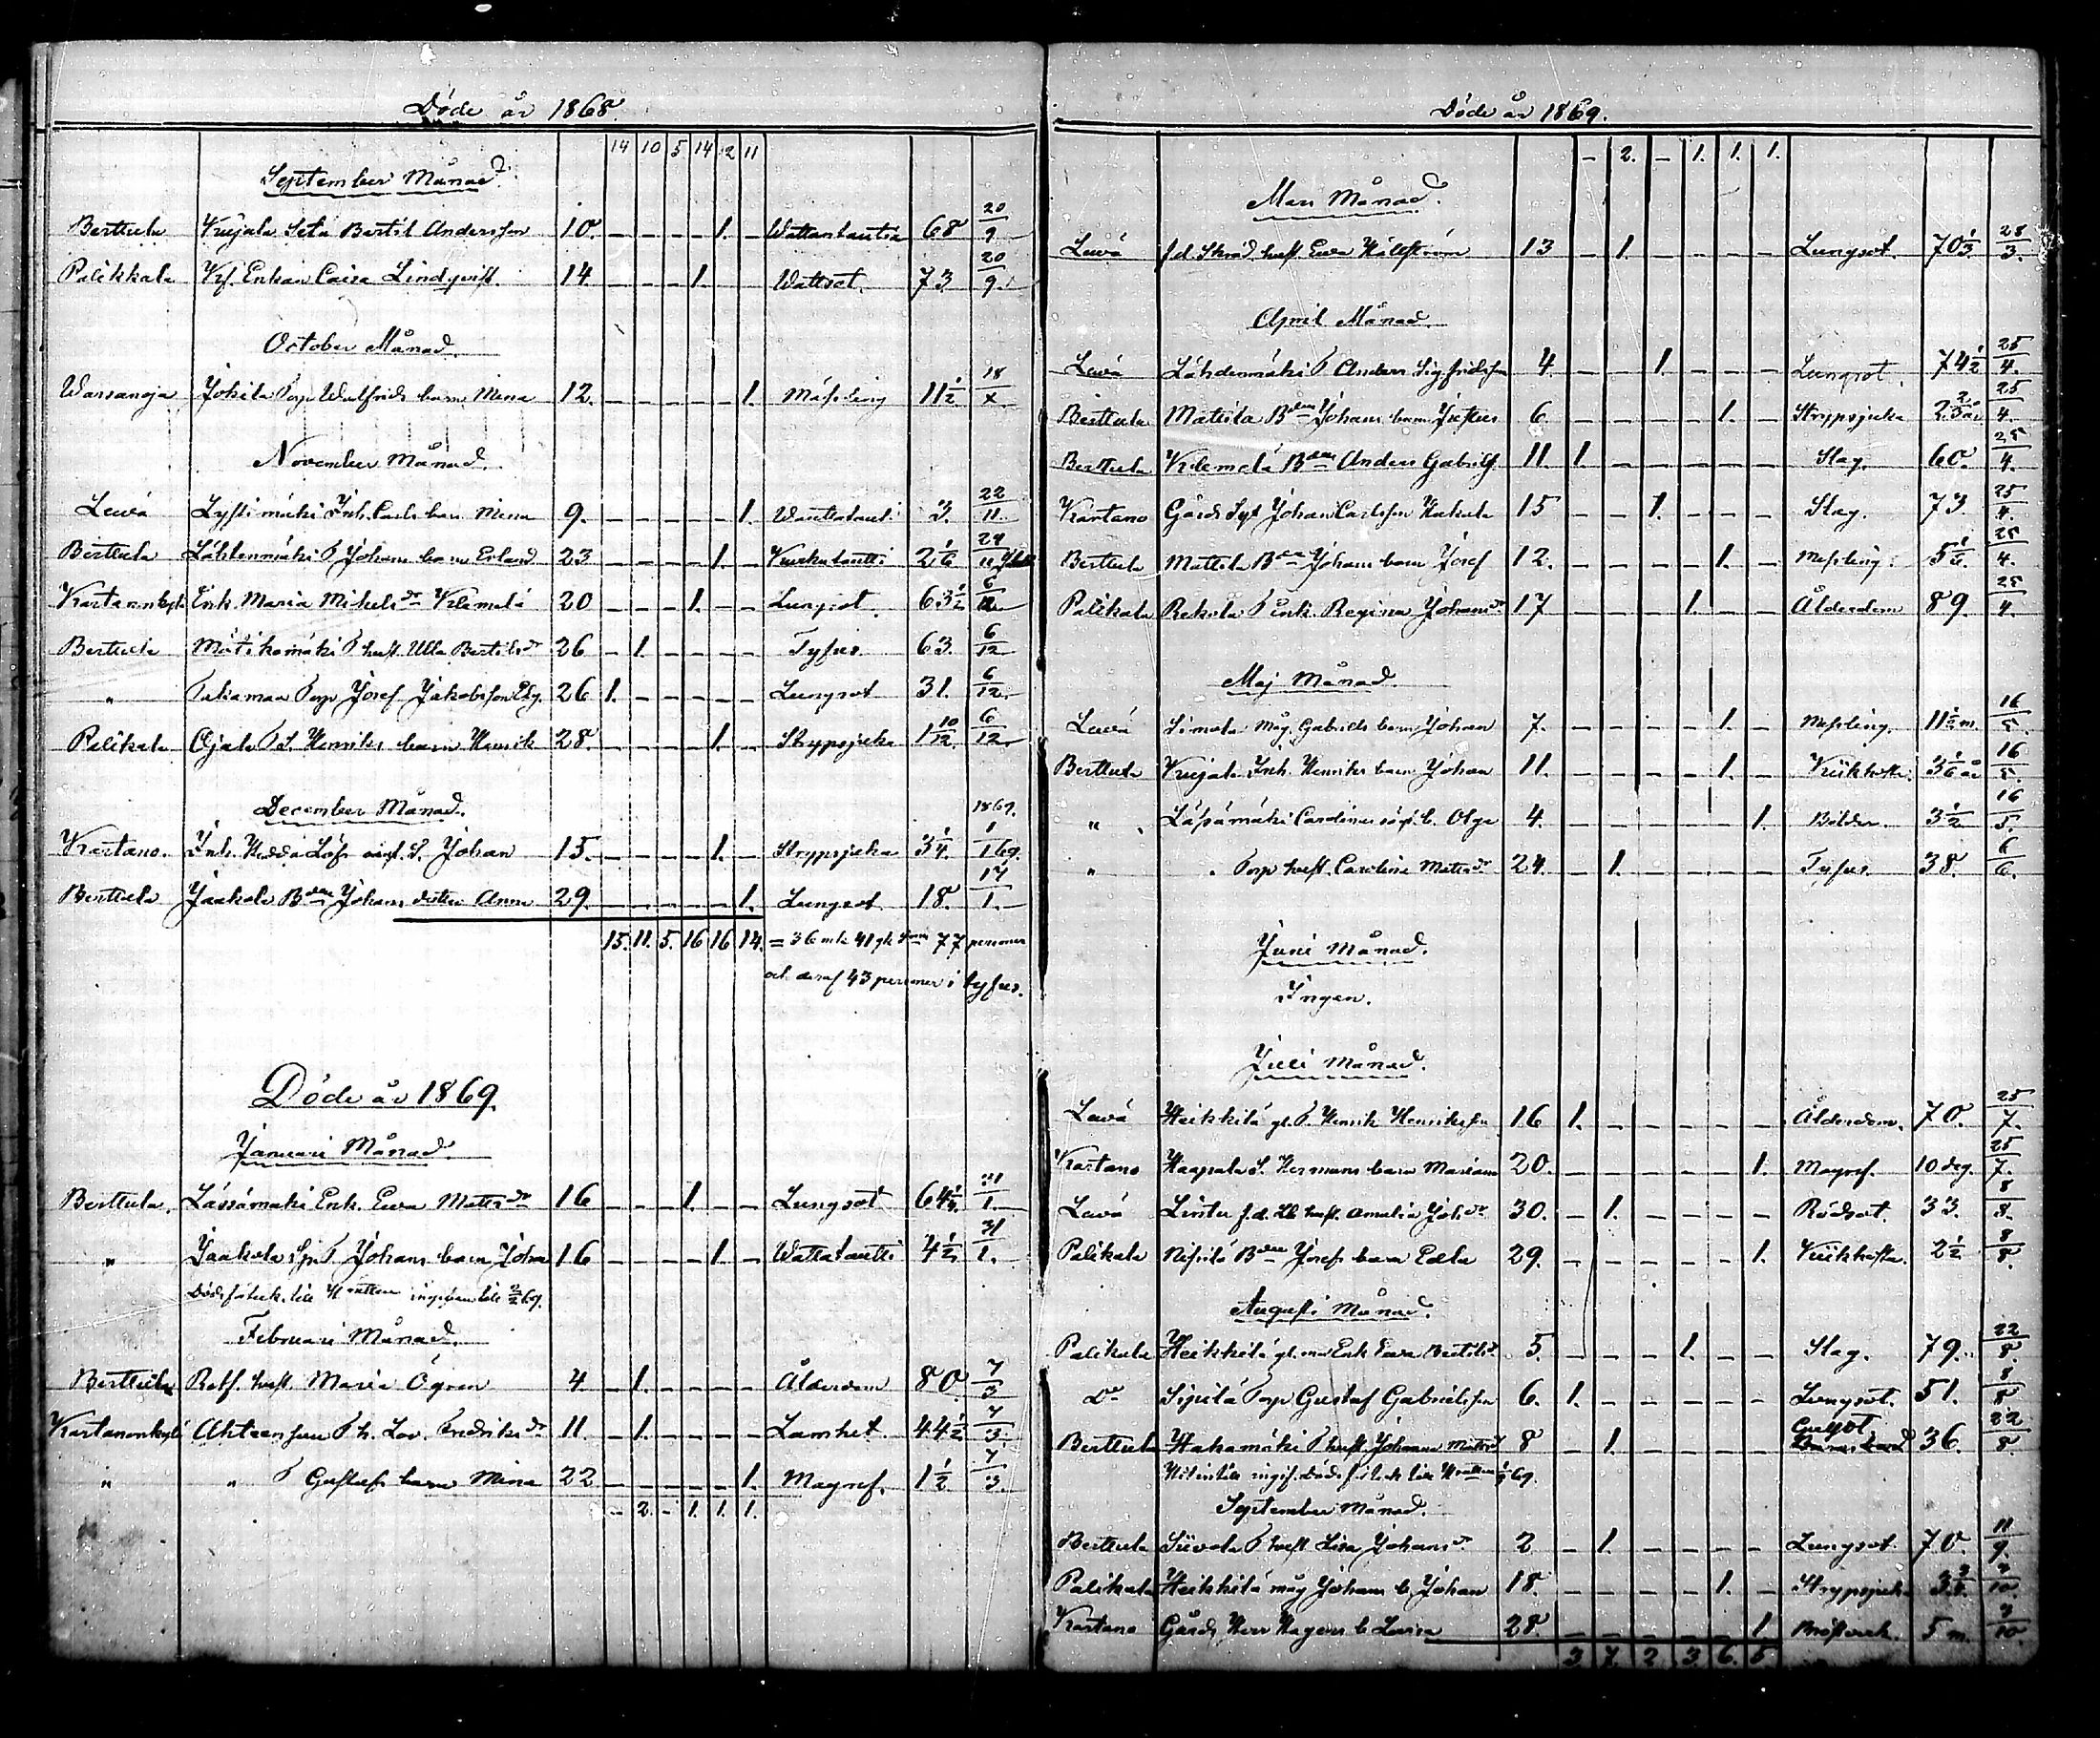 Döde år 1868.
14 10 5 14 2 11
September Månad.
Berttula Kujala Seta Bertil Andersson 18. – – – – 1. – Wattantautia 68 20/9
Palikkala Kf. Enkan Caisa Lindqvist. 14. – – – 1. Wattsot. 73 20/9
October Månad.
Warsanoja Jokela Torp Walfrids barn Mina 12. – – – – – 1. Mässling 11 1/2 18/x
November Månad.
Lewä Inh. Carls barn Mina 9. – – – – – 1. 3. 22/11
Berttula Lähteenmäki T. Johans barn Erland 23 – – – – 1. – Kurkutautti 2 1/6 29/11
Kartanonkylä Enk. Maria Mikelsdr Klemelä 20 – – – 1. – – Lungsot 63 1/2 6/12
Berttula Mätikömäki T. hust. Ulla Bertilsdr 26 – 1. – – – – Tyfus 63. 6/12
" Takamaa Torp Josef Jakobsson 26 1. – – – – – Lungsot 31. 6/12
Palikala Ojala T. S. Henriks barn Henrik 28. – – – – 1. – Strypsjuka 1 10/12 6/12
December Månad. 1869.
Kartano. Inh. Hedda Löfs oägt. S. Johan 15. – – – – 1. – Strypsjuka 3 1/4. 1/1 69.
Berttula Jaakola Bdns Johans dotter Anna 29. – – – – – 1. Lungsot 18. 17/1.
15. 11. 5. 16 16 14. = 36 mk 41 qk 77 personer
och deraf 43 personer i tyfus.
Döde år 1869.
Januari Månad.
Berttula. Lässämäki Enk. Ewa Mattsdr 16 – – – 1. – – Lungsot 64 1/4. 31/1.
" Jaakola T. Johans barn Johan 16 – – – – 1. – Wattatautti 4 1/2 31/1.
ingifven till 2/2 69.
Februari Månad.
Berttula hust. Maria Ögren 4. – 1. – – – – Ålderdom 80 7/3
Kartanonkylä T. h. Lov. Fredriksdr 11 – 1. – – – – Lamhet 44 1/2 7/3
" " T. Gustafs barn Mina 22 – – – – – 1. Magref. 1 1/2 7/3.
– 2. – 1. 1. 1.
Döde år 1869.
– 2. – 1. 1. 1.
Mars Månad.
Lewä f.d. Skräd. hust. Ewa Hällström 13 – 1. – – – – Lungsot. 70 1/3 28/3.
April Månad.
Lewä Lähdenmäki T. Anders Sigfridsson 4. – – 1. – – – Lungsot. 74 1/2 25/4.
Berttula Mattila Bdns Johans barn Justus 6. – – – – 1. – Strypsjuka 2 2/3 år 25/4.
Berttula Klemelä Bden Anders Gabriels. 11. 1. – – – – – Slag. 60. 25/4.
Kartano Gårds Johan Carlsson Hakala 15 – – 1. – – – Slag. 73. 25/4.
Berttula Mattila Bdns Johans barn Josef 12. – – – – 1. – Mässling. 28/4.
Palikala Rekola T. Enk. Regina Johansdr 17 – – – 1. – – Ålderdom 89. 25/4.
Maj Månad.
Lewä Simola Måg Gabriels barn Johan 7. – – – – 1. – Mässling. 11 1/2 m. 16/5.
Berttula Kujala Inh. Henriks barn Johan 11. – – – – 1. – Kikhosta. 3 1/6 år 16/5.
" Läpämäki Carolinas oägt. b. Olga 4. – – – – – 1. Bölder. 3 1/2 16/5.
" " Torp hust. Carolina Mattsdr 24. – 1. – – – – Tyfus 38. 6/6.
Juni Månad.
Ingen.
Juli Månad.
Lewä Heikkilä gl. T. Henrik Henriksson 16 1. – – – – – Ålderdom. 70. 25/7.
Kartano Haapala S. Hermans barn Mariana 20. – – – – – 1. Magref. 10 dag. 25/7.
Lewä Linta f.d. hust. Amalia Joh.dr 30. – 1. – – – – Rödsot. 33. 8/8.
Palikala Bdns Josefs barn Edla 29. – – – – – 1. Kikhosta. 2 1/2 8/8.
Augusti Månad.
Palikala Heikkilä Enk Ewa Bertilsdr 5. – – – 1. – – Slag. 79. 22/8.
Do Sipilä Torp Gustaf Gabrielsson 6. 1. – – – – – Lungsot. 51. 8/8
Berttula Hakamäki T. hust. Johanna Mattsdr 8 – 1. – – – – Gulsot 36. 22/8
September Månad.
Berttula Siivola T. hust. Lisa Johansdr 2 – 1. – – – – Lungsot. 70 11/9.
Palikala Heikkilä måg Johans b. Johan 18. – – – – 1. – Strypsjuka
Kartano Gårds Herr Hagens b. Lovisa 28. – – – – – 1. Bröstverk. 5 m. 3/10.
3. 7. 2. 3. 6. 5.